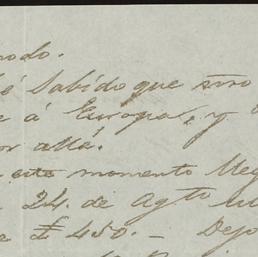 modo.
é Sabido que sino
e á Europa, y
or allá.
este momento
24. de Agto
e £ 450.— Dejo